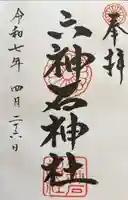 奉拝
六神石神社
令和七年 四月 二十六日